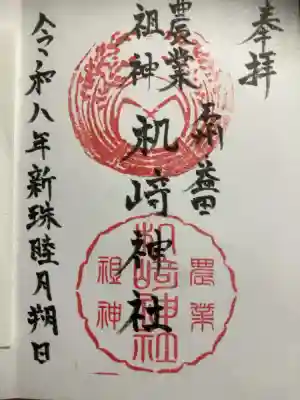 奉拝
石州益田
農業
祖神
机崎神社
農業
机崎神社
祖神
令和八年新珠睦月朔日